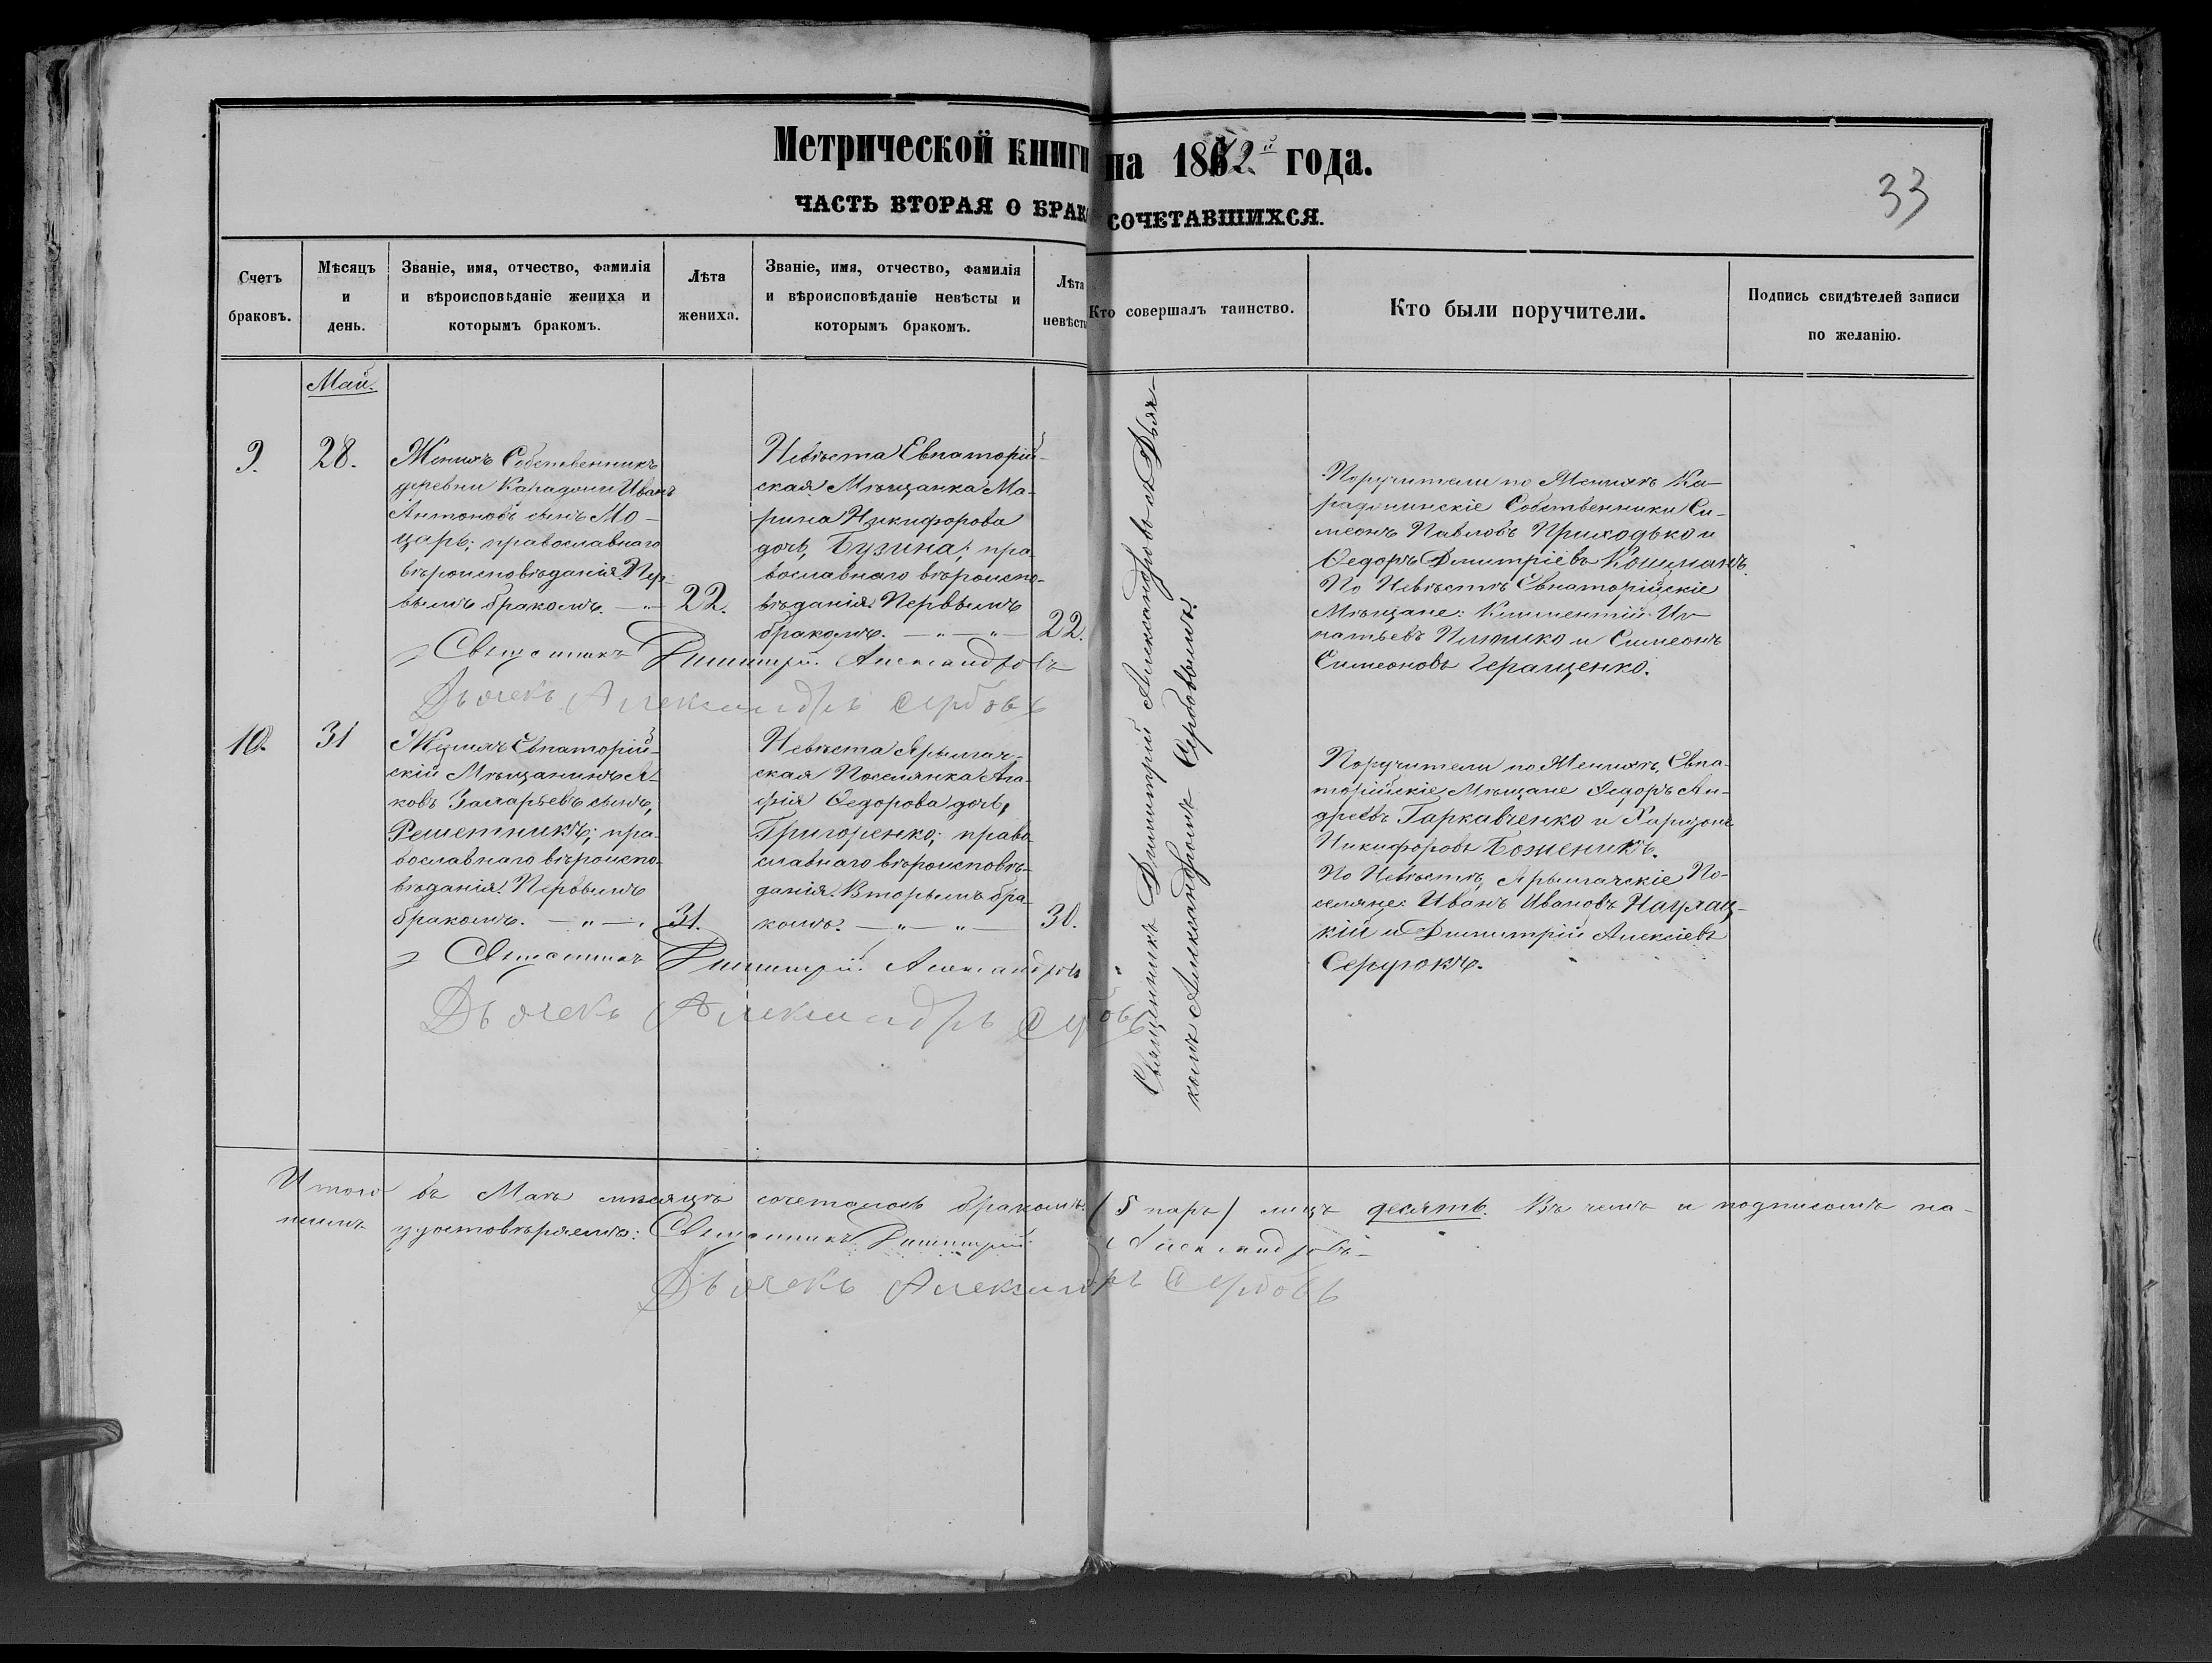 Метрической книги на 1872й года.
33
ЧАСТЬ ВТОРАЯ О БРАКОСОЧЕТАВШИХСЯ.
Счетъ
браковъ.
Мѣсяцъ
и
день.
Званіе, имя, отчество, фамилія
и вѣроисповѣданіе жениха и
которымъ бракомъ.
Лѣта
жениха.
Званіе, имя, отчество, фамилія
и вѣроисповѣданіе невѣсты и
которымъ бракомъ.
Лѣта
невѣсты
Кто совершалъ таинство.
Кто были поручители.
Подпись свидѣтелей записи
по желанію.
Май.
9.
28.
Женихъ Собственникъ
деревни Карадочи Иванъ
Антоновъ сынъ Мо-
царь; православнаго
вѣроисповѣданія. Пер-
вымъ бракомъ.
22.
Невѣста Евпаторій-
ская Мѣщанка Ма-
рина Никифорова
дочь, Бузина; пра-
вославнаго вѣроиспо-
вѣданія. Первымъ
бракомъ.
22.
Священникъ Димитрій Александровъ съ Дьяч-
комъ Александромъ Сербовымъ.
Поручители по Женихѣ Ка-
радочинскіе Собственники Си-
меонъ Павловъ Приходько и
Ѳедоръ Димитріевъ
По Невѣстѣ Евпаторійскіе
Мѣщане: Климентій Иг-
натьевъ и Симеонъ
Симеоновъ Геращенко.
Священникъ Димитрій Александровъ
Дьячекъ Александръ Сербовъ
10.
31
Женихъ Евпаторій-
скій Мѣщанинъ Я-
ковъ Захарьевъ сынъ,
Решетникъ; пра-
вославнаго вѣроиспо-
вѣданія. Первымъ
бракомъ.
31.
Невѣста Ярылгач-
ская Поселянка Ага-
фія Ѳедорова дочь,
Григоренко; право-
славнаго вѣроисповѣ-
данія. Вторымъ бра-
комъ.
30.
Поручители по Женихѣ, Евпа-
торійскіе Мѣщане Ѳедоръ Ан-
дреевъ Гаркавченко и Харитонъ
Никифоровъ Боженикъ.
По Невѣстѣ, Ярылгачскіе По-
селяне: Иванъ Ивановъ
кій и Димитрій Алексіевъ
Сердюкъ.
Священникъ Димитрій Александровъ
Дьячекъ Александръ Сербовъ
Итого въ Маѣ мѣсяцѣ сочеталось бракомъ (5 паръ) лицъ десять. Въ чемъ и подписомъ на-
шимъ удостовѣряемъ: Священникъ Димитрій Александровъ
Дьячекъ Александръ Сербовъ